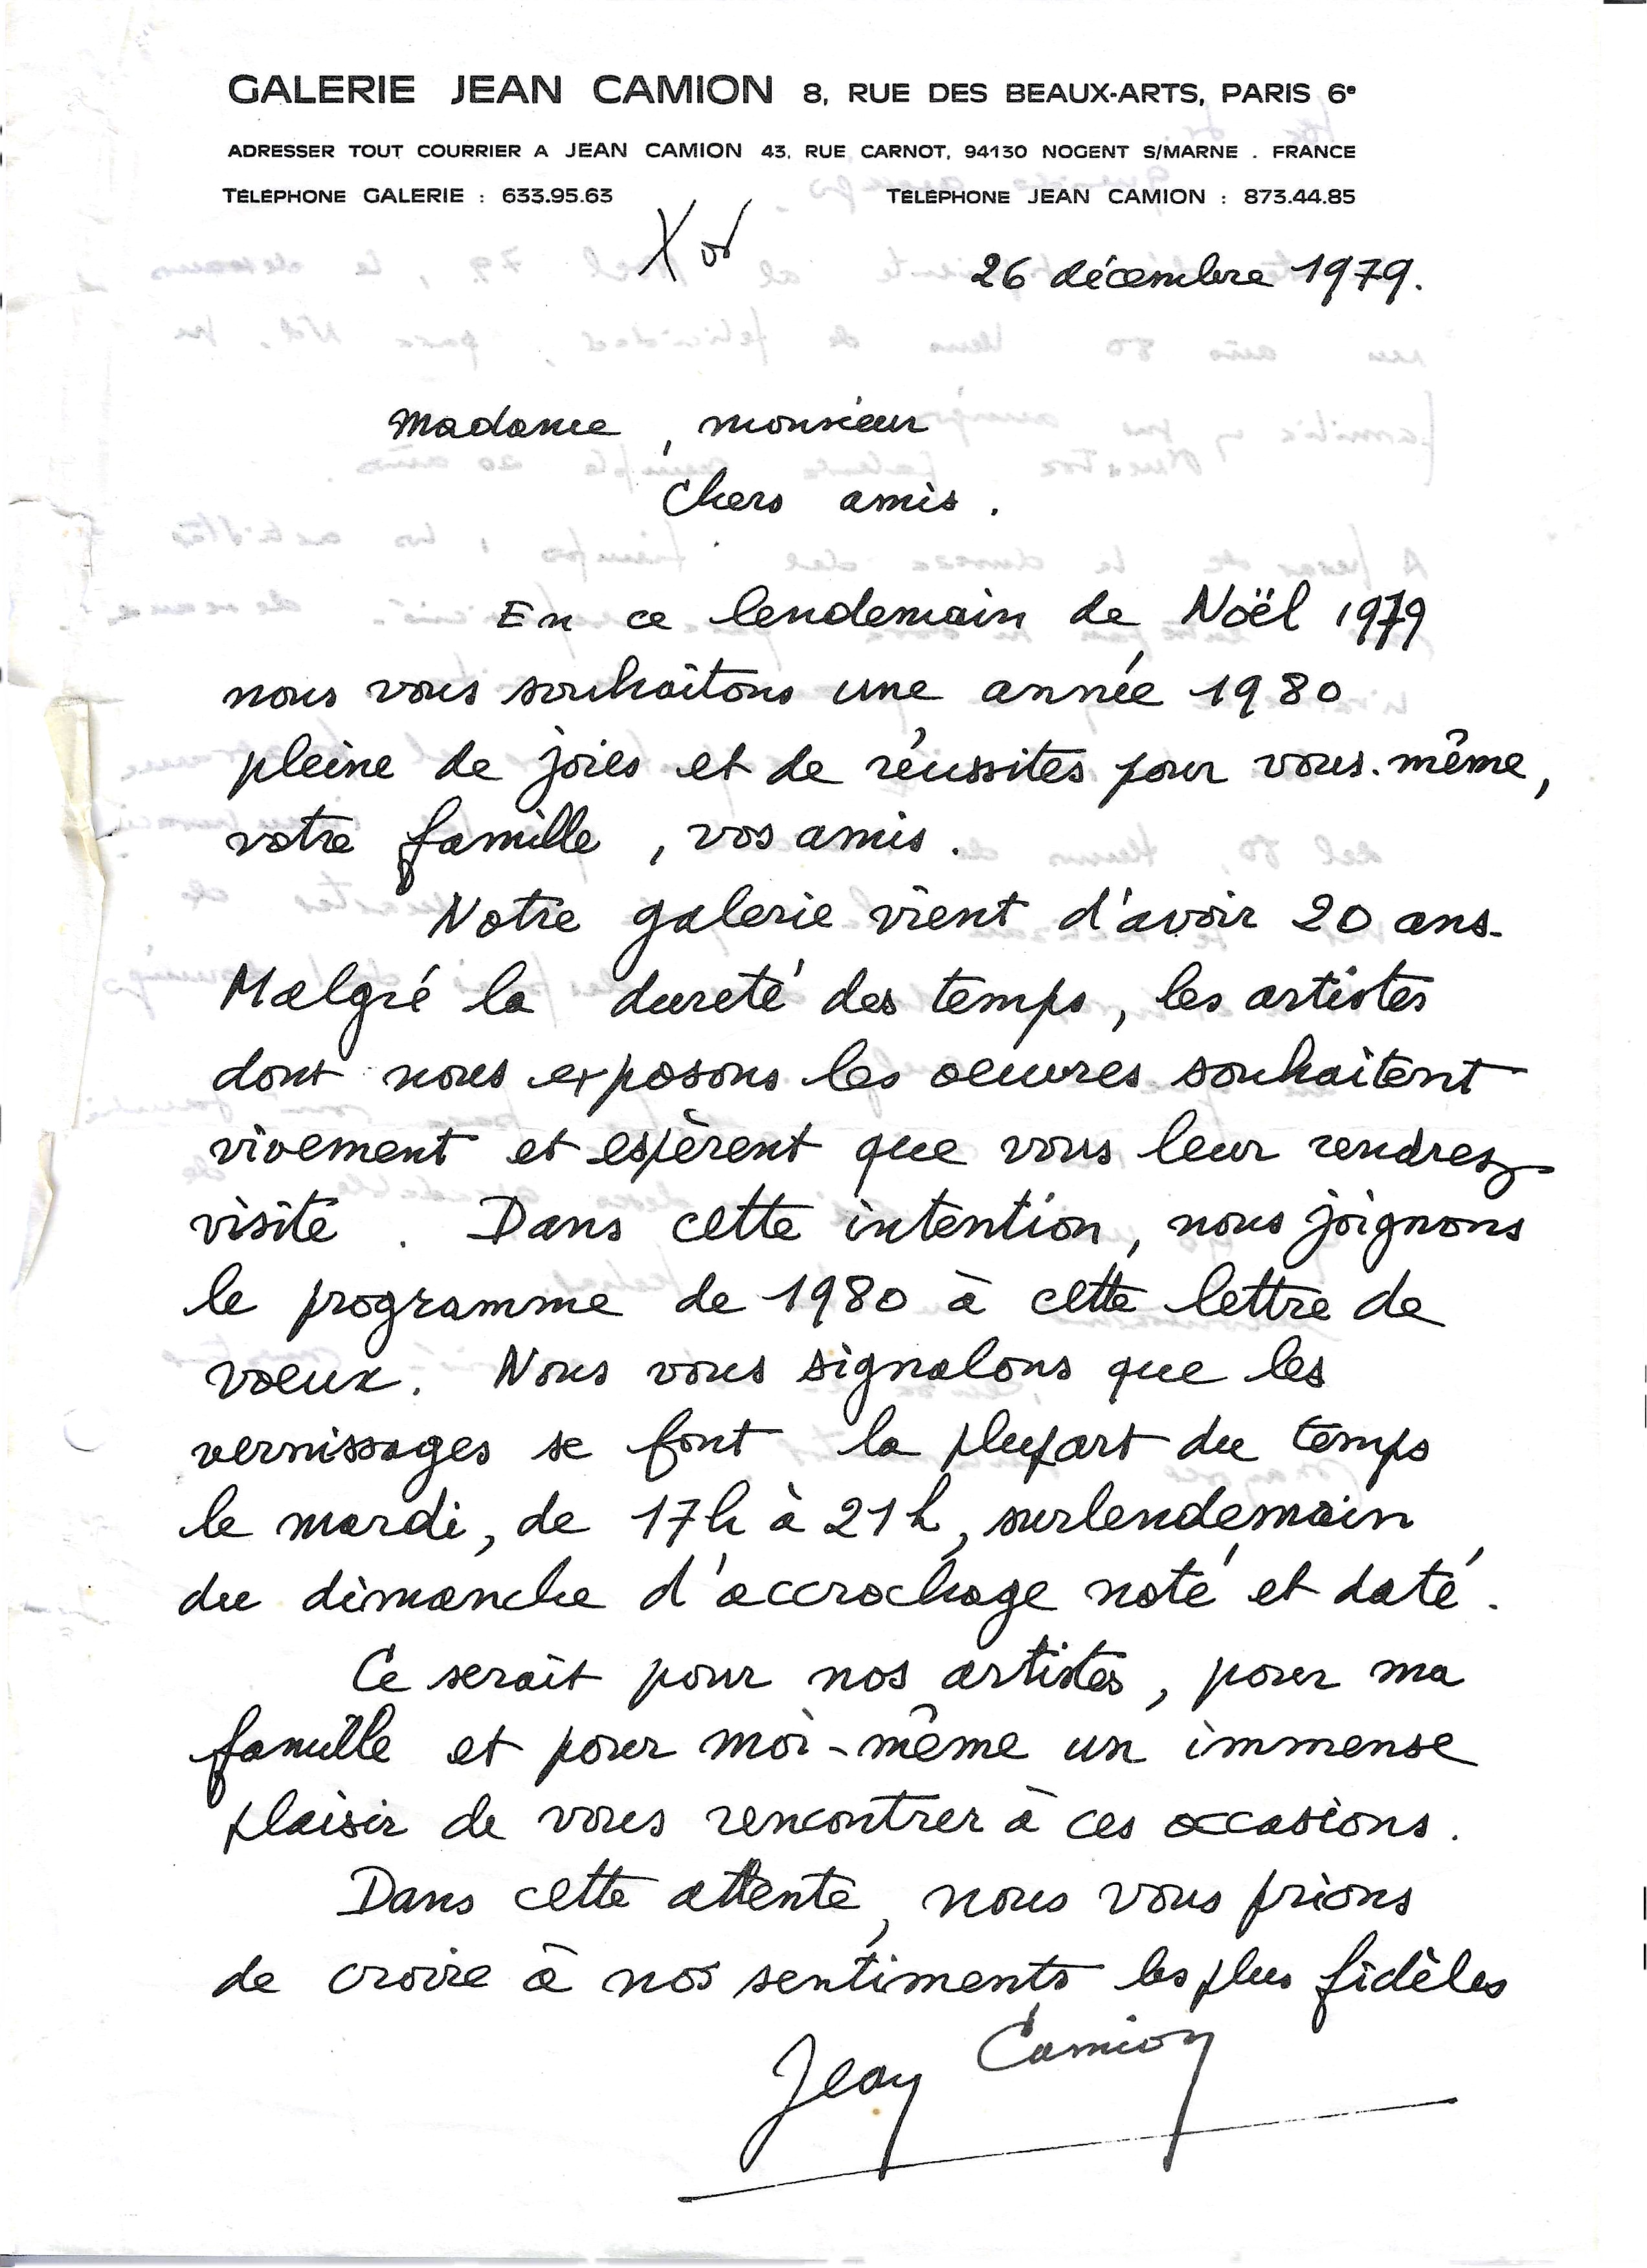 GALERIE JEAN CAMION 8, RUE DES BEAUX-ARTS, PARIS 6e
ADRESSER TOUT COURRIER A JEAN CAMION 43, RUE CARNOT, 94130 NOGENT S/MARNE . FRANCE
TÉLÉPHONE GALERIE : 633.95.63 TÉLÉPHONE JEAN CAMION : 873.44.85
26 décembre 1979.
Madame, monsieur
Chers amis.
En ce lendemain de Noël 1979
nous vous souhaitons une année 1980
pleine de joies et de réussites pour vous-même,
votre famille, vos amis.
Notre galerie vient d'avoir 20 ans.
Malgré la dureté des temps, les artistes
dont nous exposons les oeuvres souhaitent
vivement et espèrent que vous leur rendrez
visite. Dans cette intention, nous joignons
le programme de 1980 à cette lettre de
voeux. Nous vous signalons que les
vernissages se font la plupart du temps
le mardi, de 17h à 21h, surlendemain
du dimanche d'accrochage noté et daté.
Ce serait pour nos artistes, pour ma
famille et pour moi-même un immense
plaisir de vous rencontrer à ces occasions.
Dans cette attente, nous vous prions
de croire à nos sentiments les plus fidèles
Jean Camion